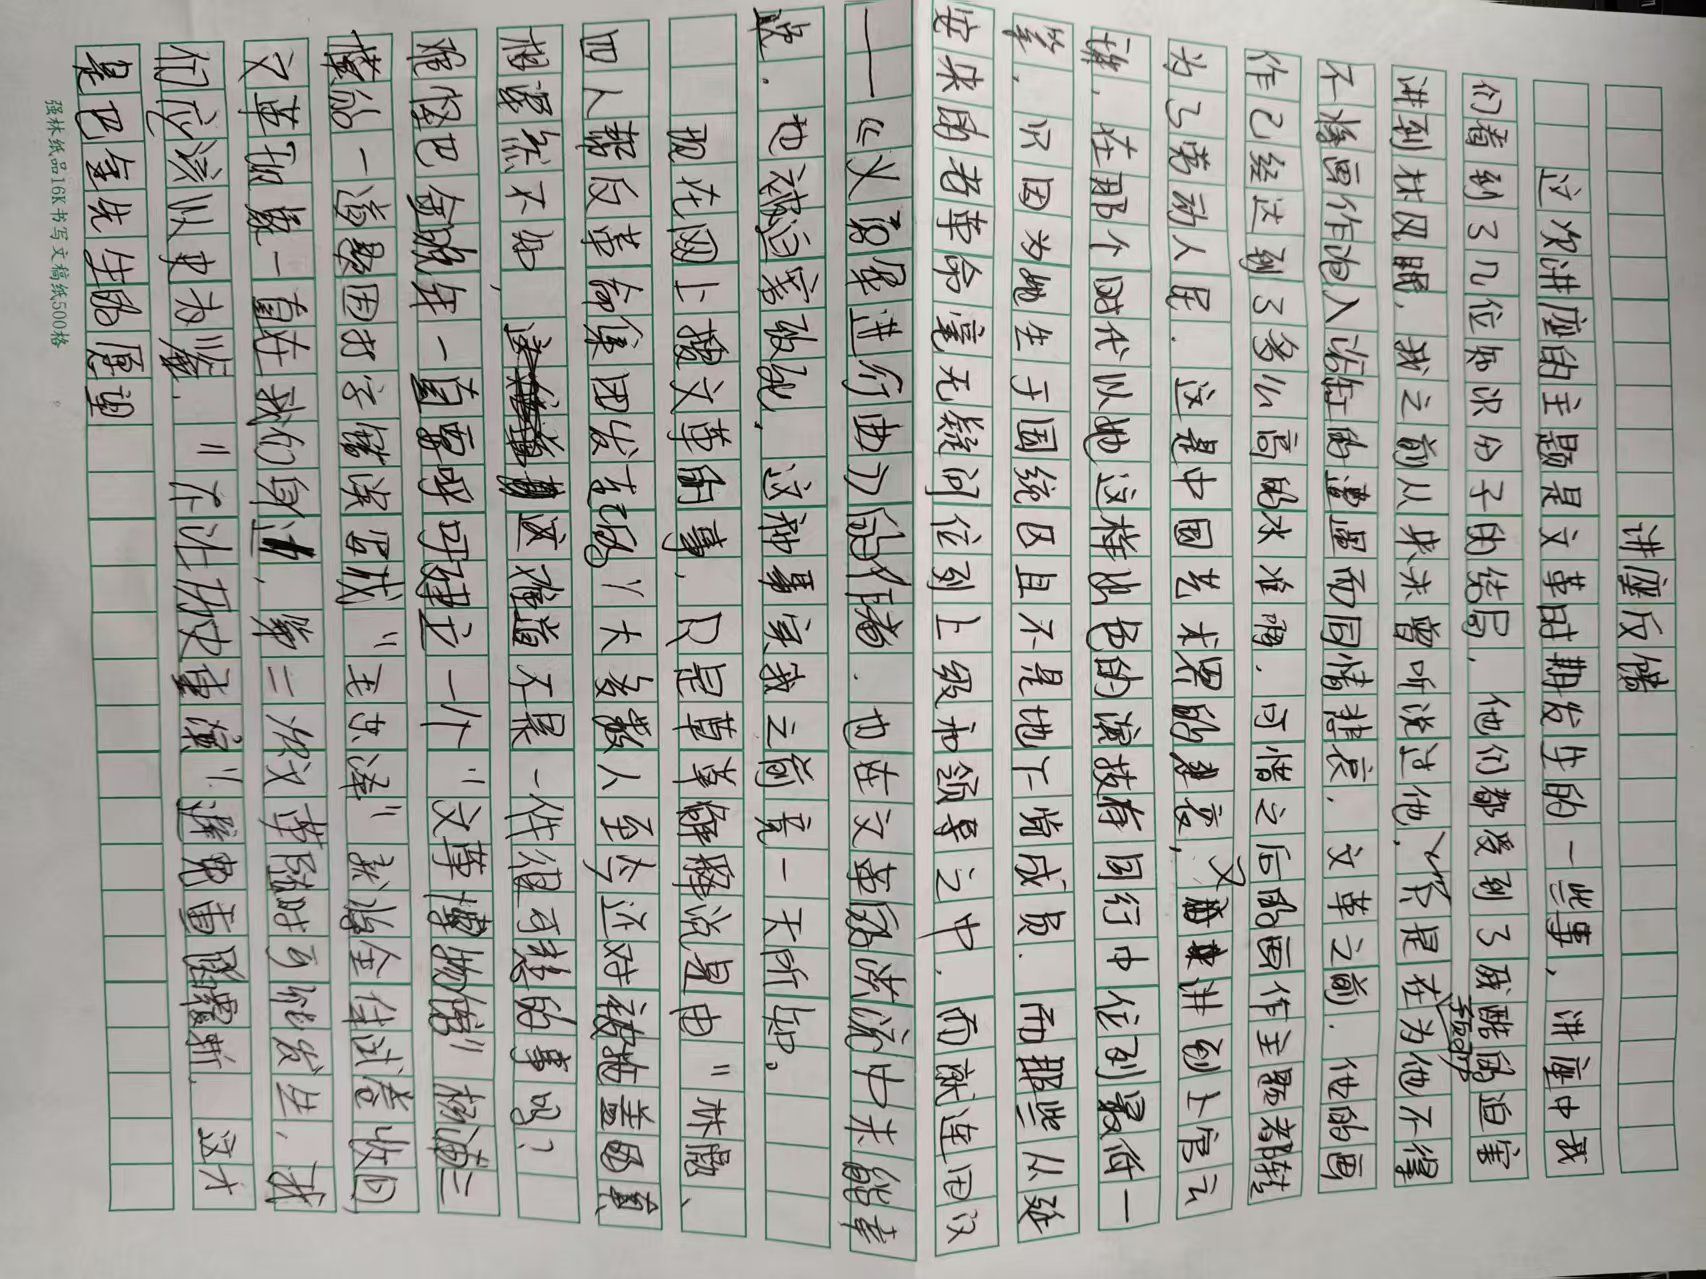 讲座反馈
这次讲座的主题是文革时期发生的一些事，讲座中我
们看到了几位知识分子的结局，他们都受到了残酷的迫害
讲到林风眠，我之前从来未曾听说过他，不是在为他不得
不将画作泡入浴缸的遭遇而同情悲哀．文革之前．他的画
作已经达到了多么高的水准啊．可惜之后的画作主题都转
为了劳动人民．这是中国艺术界的悲哀，又讲到上官云
珠，在那个时代以她这样出色的演技在同行中位列最低一
等，只因为她生于国统区且不是地下党成员．而那些从延
安来的老革命毫无疑问位列上级和领导之中．而就连田汉
——《义勇军进行曲》的作者．也在文革的洪流中未能幸
，也被迫害致死，这种事实我之前竟一无所知。
现在网上搜文革的事，只是草草解释说是由"林彪、
四人帮反革命集团发起的"大多数人至今还对被掩盖的真
相浑然不知，这难道不是一件很可悲的事吗？
难怪巴金晚年一直要呼吁建立一个"文革博物馆"杨浦二
模的一道题因打字错误写成"王忠泽"就将全体试卷收回
文革和我一直在我们身边，第二次文革随时可能发生，我
们应该以史为鉴，"不让历史重演"避免重蹈覆辙，这才
是巴金先生的愿望
强林纸品16K书写文稿纸500格